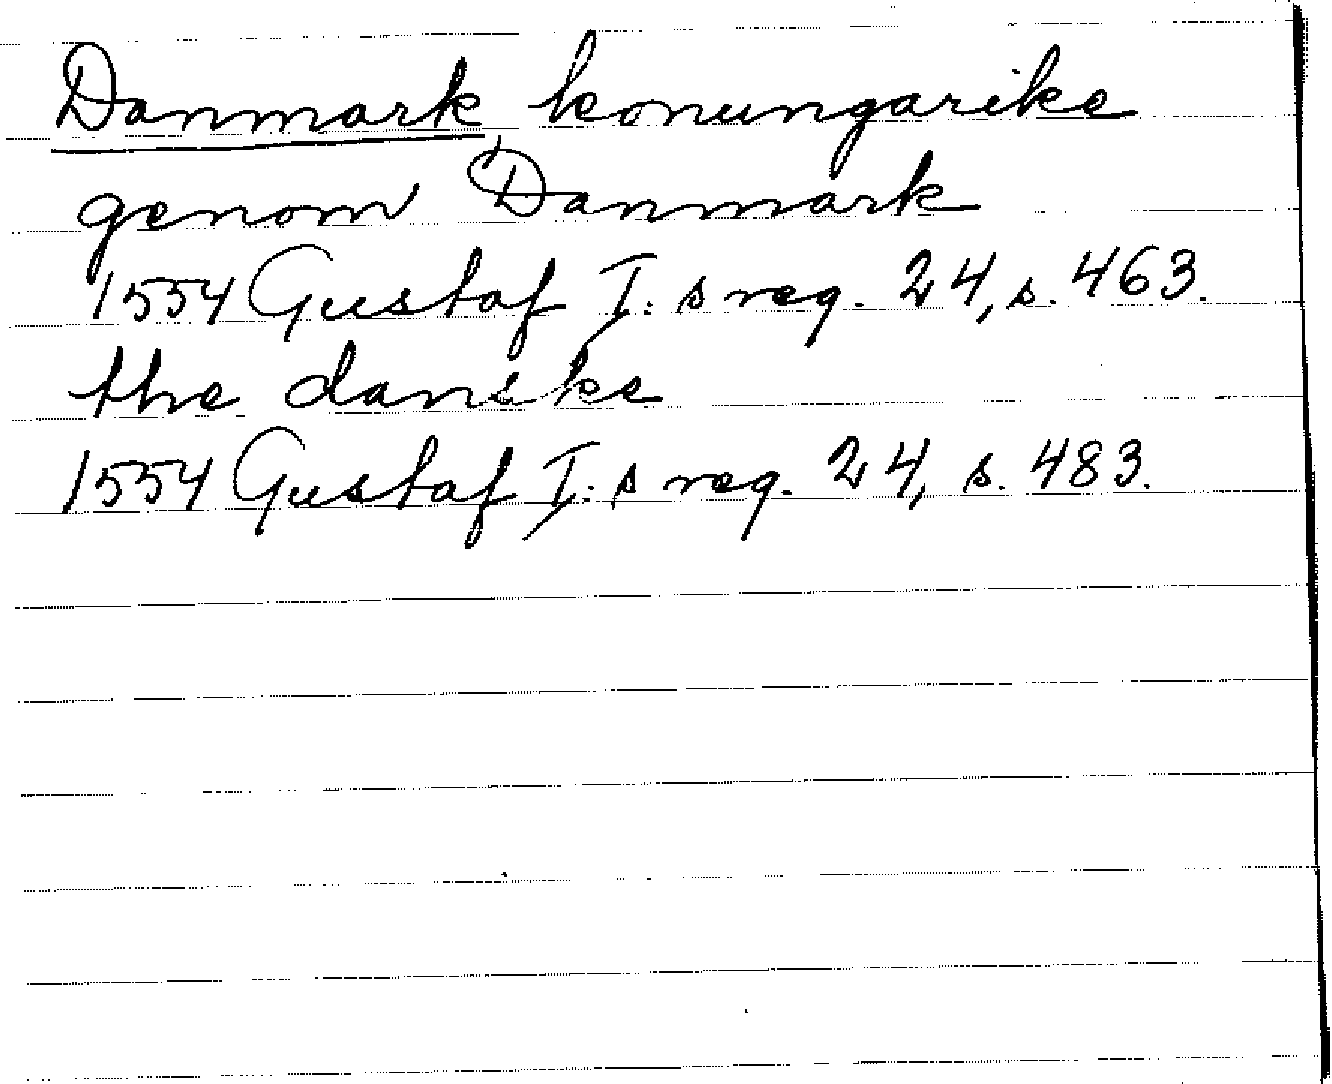 Danmark konungarike
genom Danmark
1554 Gustaf I: s reg. 24, s. 463.
the danske
1554 Gustaf I: s reg. 24, s. 483.